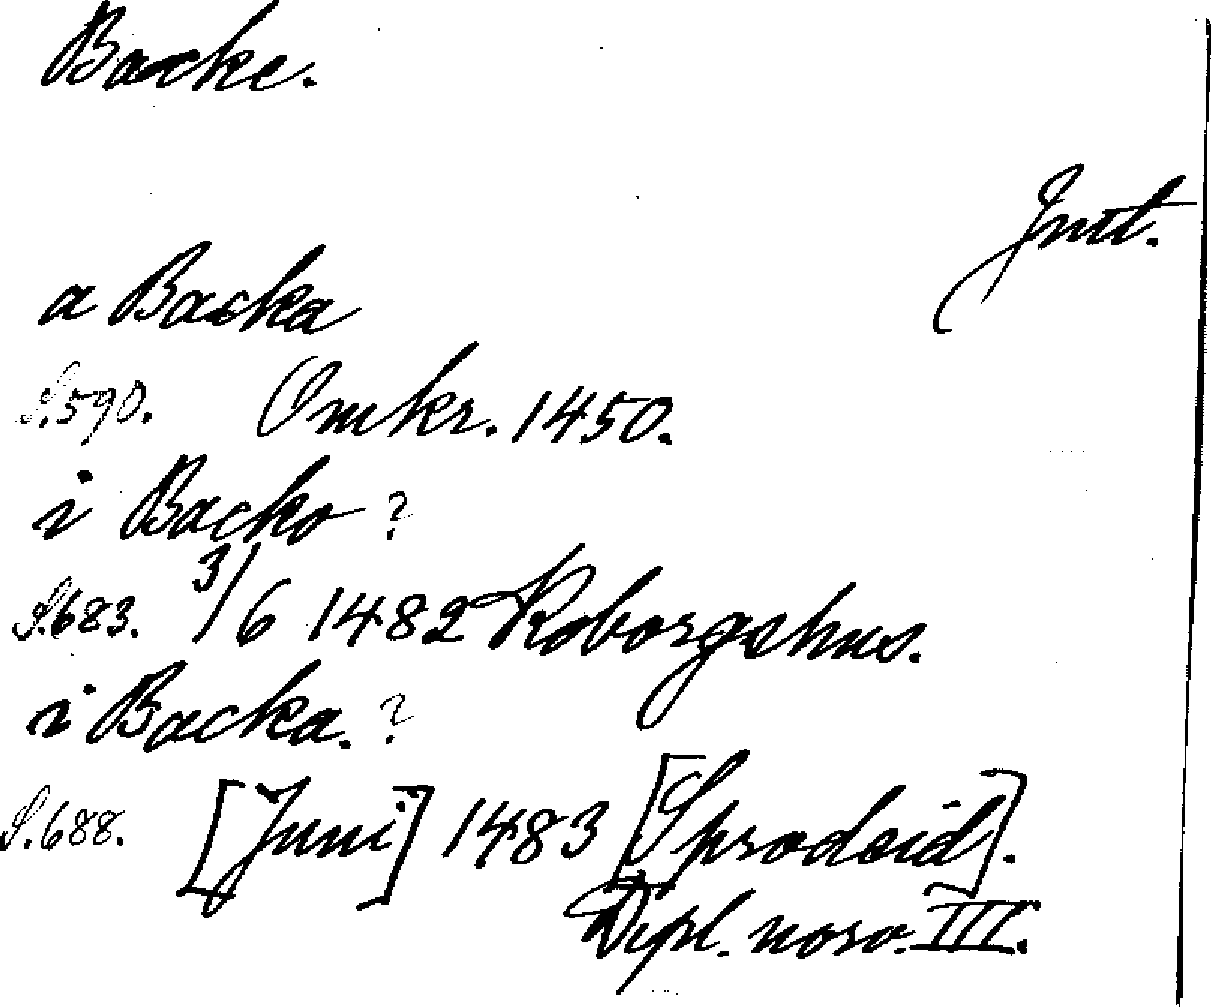 Backe.
Jmt.
a Backa
S.590. Omkr. 1450.
i Backo ?
S.683. 3/6 1482 Koborgshus.
i Backa. ?
S.688. [Juni] 1483 [Sprodeid].
Dipl. norv. III.